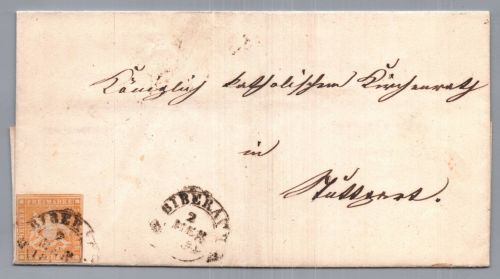 Königlich katholischem Kirchenrath
in
Stuttgart.
FREIMARKE
BIBERACH
BIBERACH
2